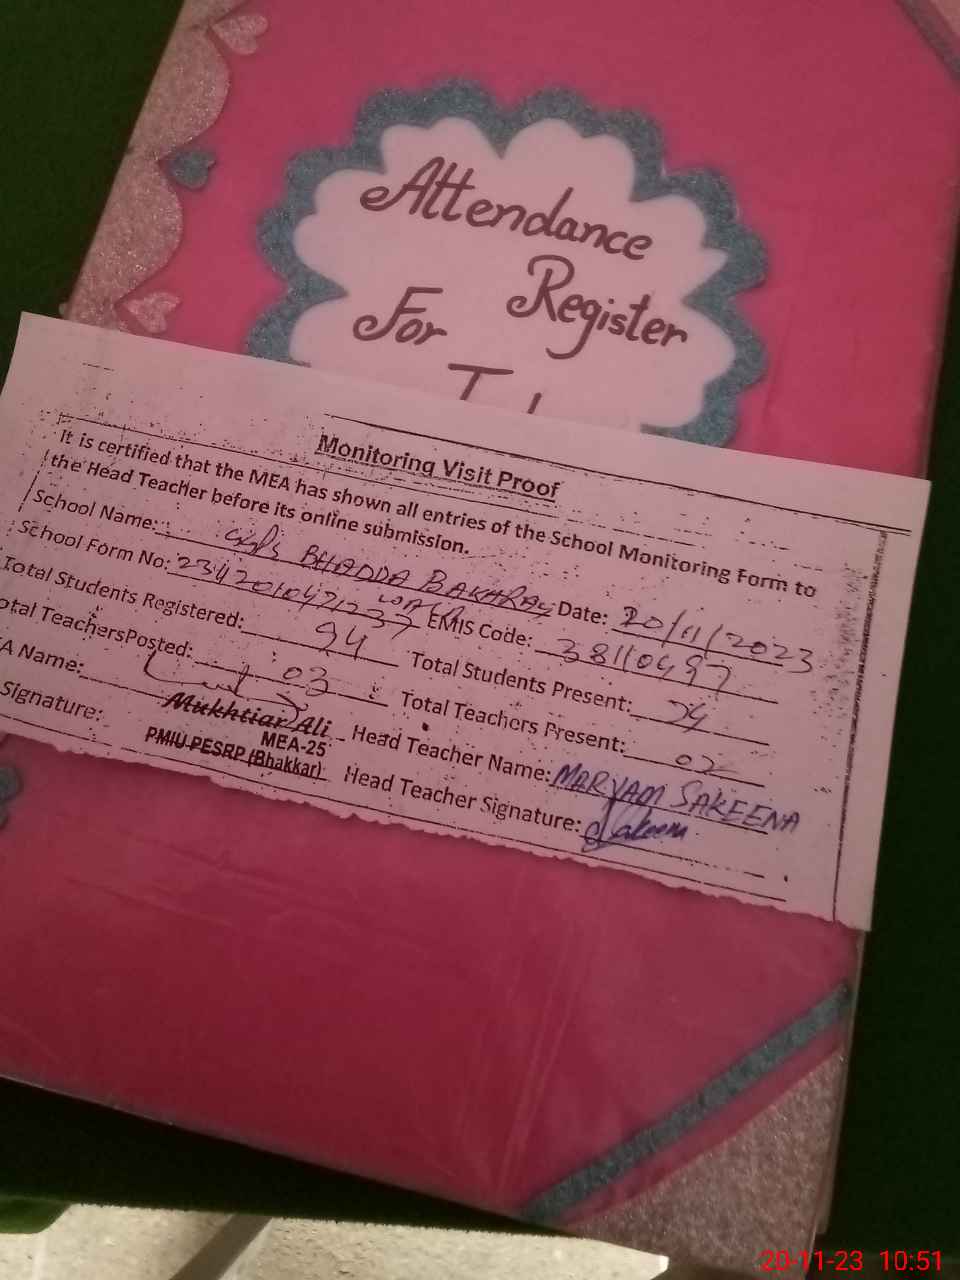 Attendance
Register
For
Monitoring Visit Proof
It is certified that the MEA has shown all entries of the School Monitoring Form to
the Head Teacher before its online submission.
School Name: BHADDA Date: 20/11/2023
School Form No: EMIS Code: 38110497
Total Students Registered: 94 Total Students Present:
otal TeachersPosted: 03 Total Teachers Present: 02
A Name: Mukhtiar Ali Head Teacher Name: MARYAM SAKEENA
MEA-25
PMIU-PESRP (Bhakkar)
Signature: Head Teacher Signature: Sakeena
20-11-23 10:51